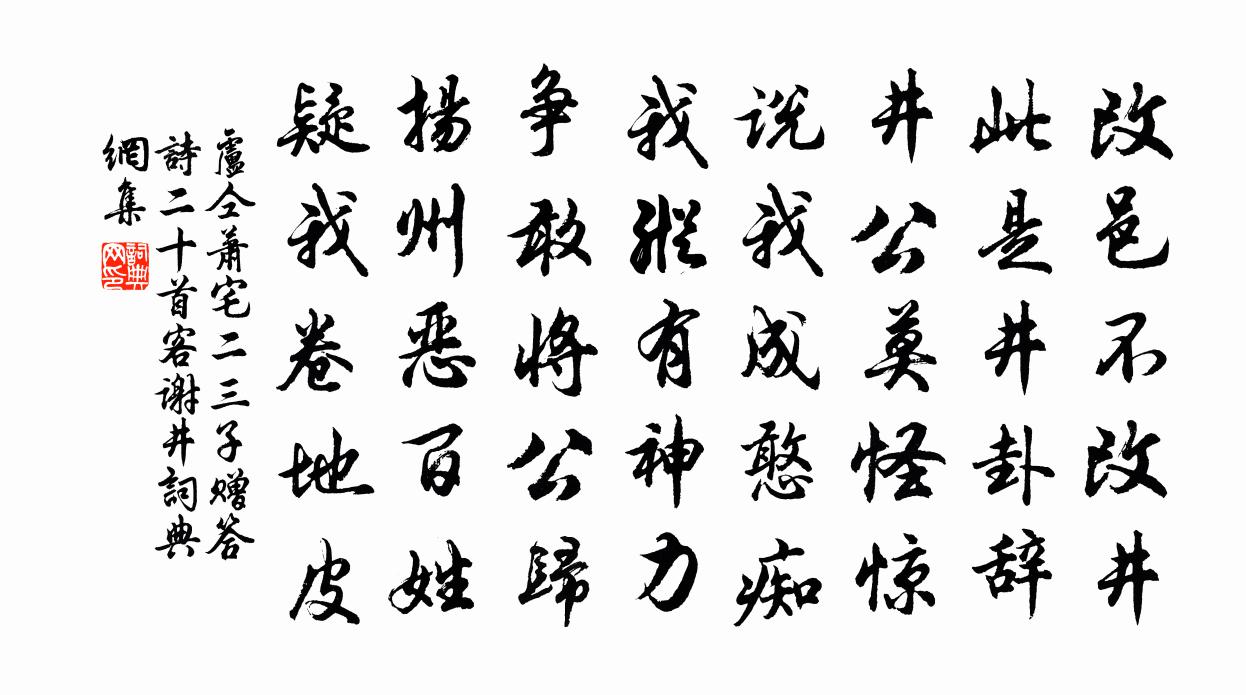 改邑不改井
此是井卦辞
井公莫怪惊
说我成憨痴
我纵有神力
争敢将公歸
揚州恶百姓
疑我卷地皮
盧仝萧宅二三子赠答
詩二十首客谢井詞典
網集
詞典